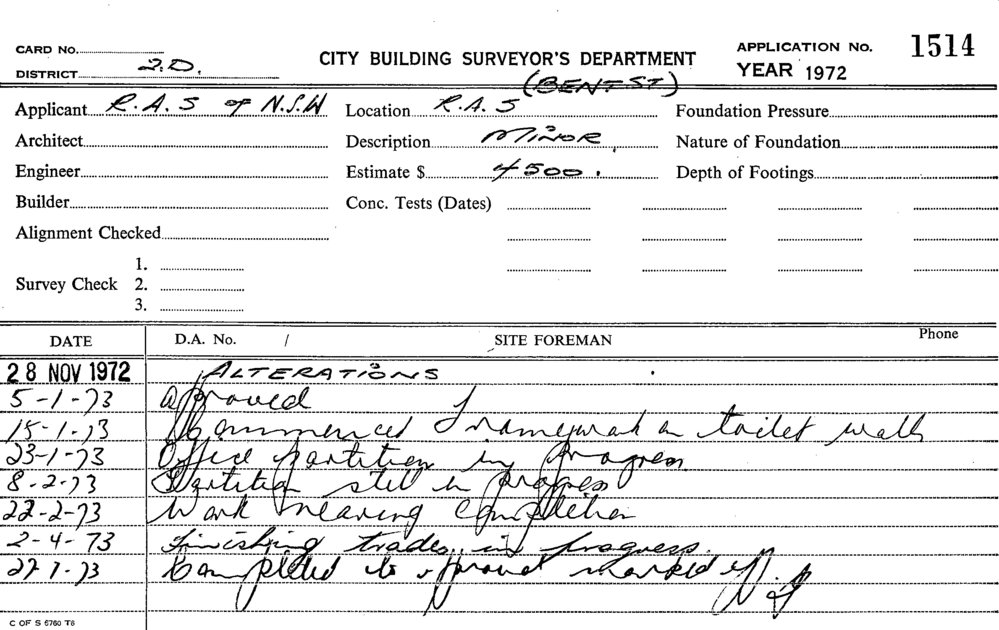 CARD No.
DISTRICT 2.D.
CITY BUILDING SURVEYOR'S DEPARTMENT
APPLICATION No. 1514
YEAR 1972
(BENT ST)
Applicant R.A.S of N.S.W Location R.A.S Foundation Pressure
Architect Description MINOR Nature of Foundation
Engineer Estimate $ 4500. Depth of Footings
Builder Conc. Tests (Dates)
Alignment Checked
Survey Check 1.
2.
3.
DATE D.A. No. / SITE FOREMAN Phone
28 NOV 1972 ALTERATIONS
5-1-73 Approved
15-1-73 Commenced Framework on toilet walls
23-1-73 Office partition in progress
8-2-73 Partition still in progress
22-2-73 Work nearing completion
2-4-73 Finishing trades in progress.
Completed as approved marked off
C OF S 6760 T6